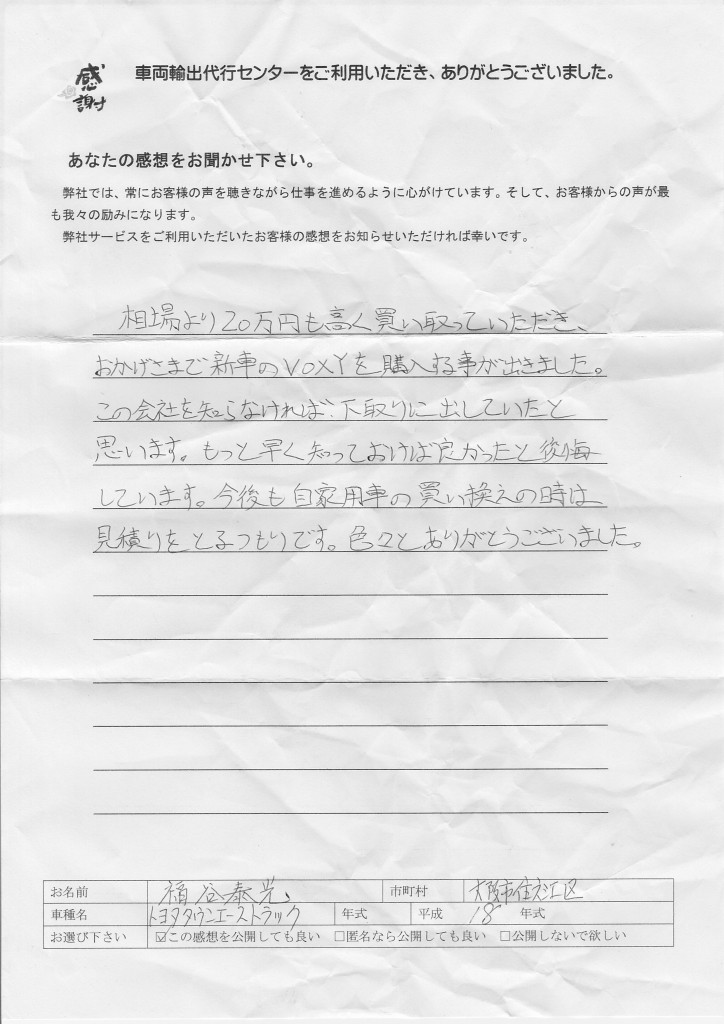 感謝
車両輸出代行センターをご利用いただき、ありがとうございました。
あなたの感想をお聞かせ下さい。
弊社では、常にお客様の声を聴きながら仕事を進めるように心がけています。そして、お客様からの声が最
も我々の励みになります。
弊社サービスをご利用いただいたお客様の感想をお知らせいただければ幸いです。
相場より20万円も高く買い取っていただき、
おかげさまで新車のVOXYを購入する事が出きました。
この会社を知らなければ、下取りに出していたと
思います。もっと早く知っておけば良かったと後悔
しています。今後も自家用車の買い換えの時は
見積りをとるつもりです。色々とありがとうございました。
お名前 福谷泰光 市町村 大阪市住之江区
車種名 トヨタタウンエーストラック 年式 平成 18 年式
お選び下さい ☑この感想を公開しても良い □匿名なら公開しても良い □公開しないで欲しい